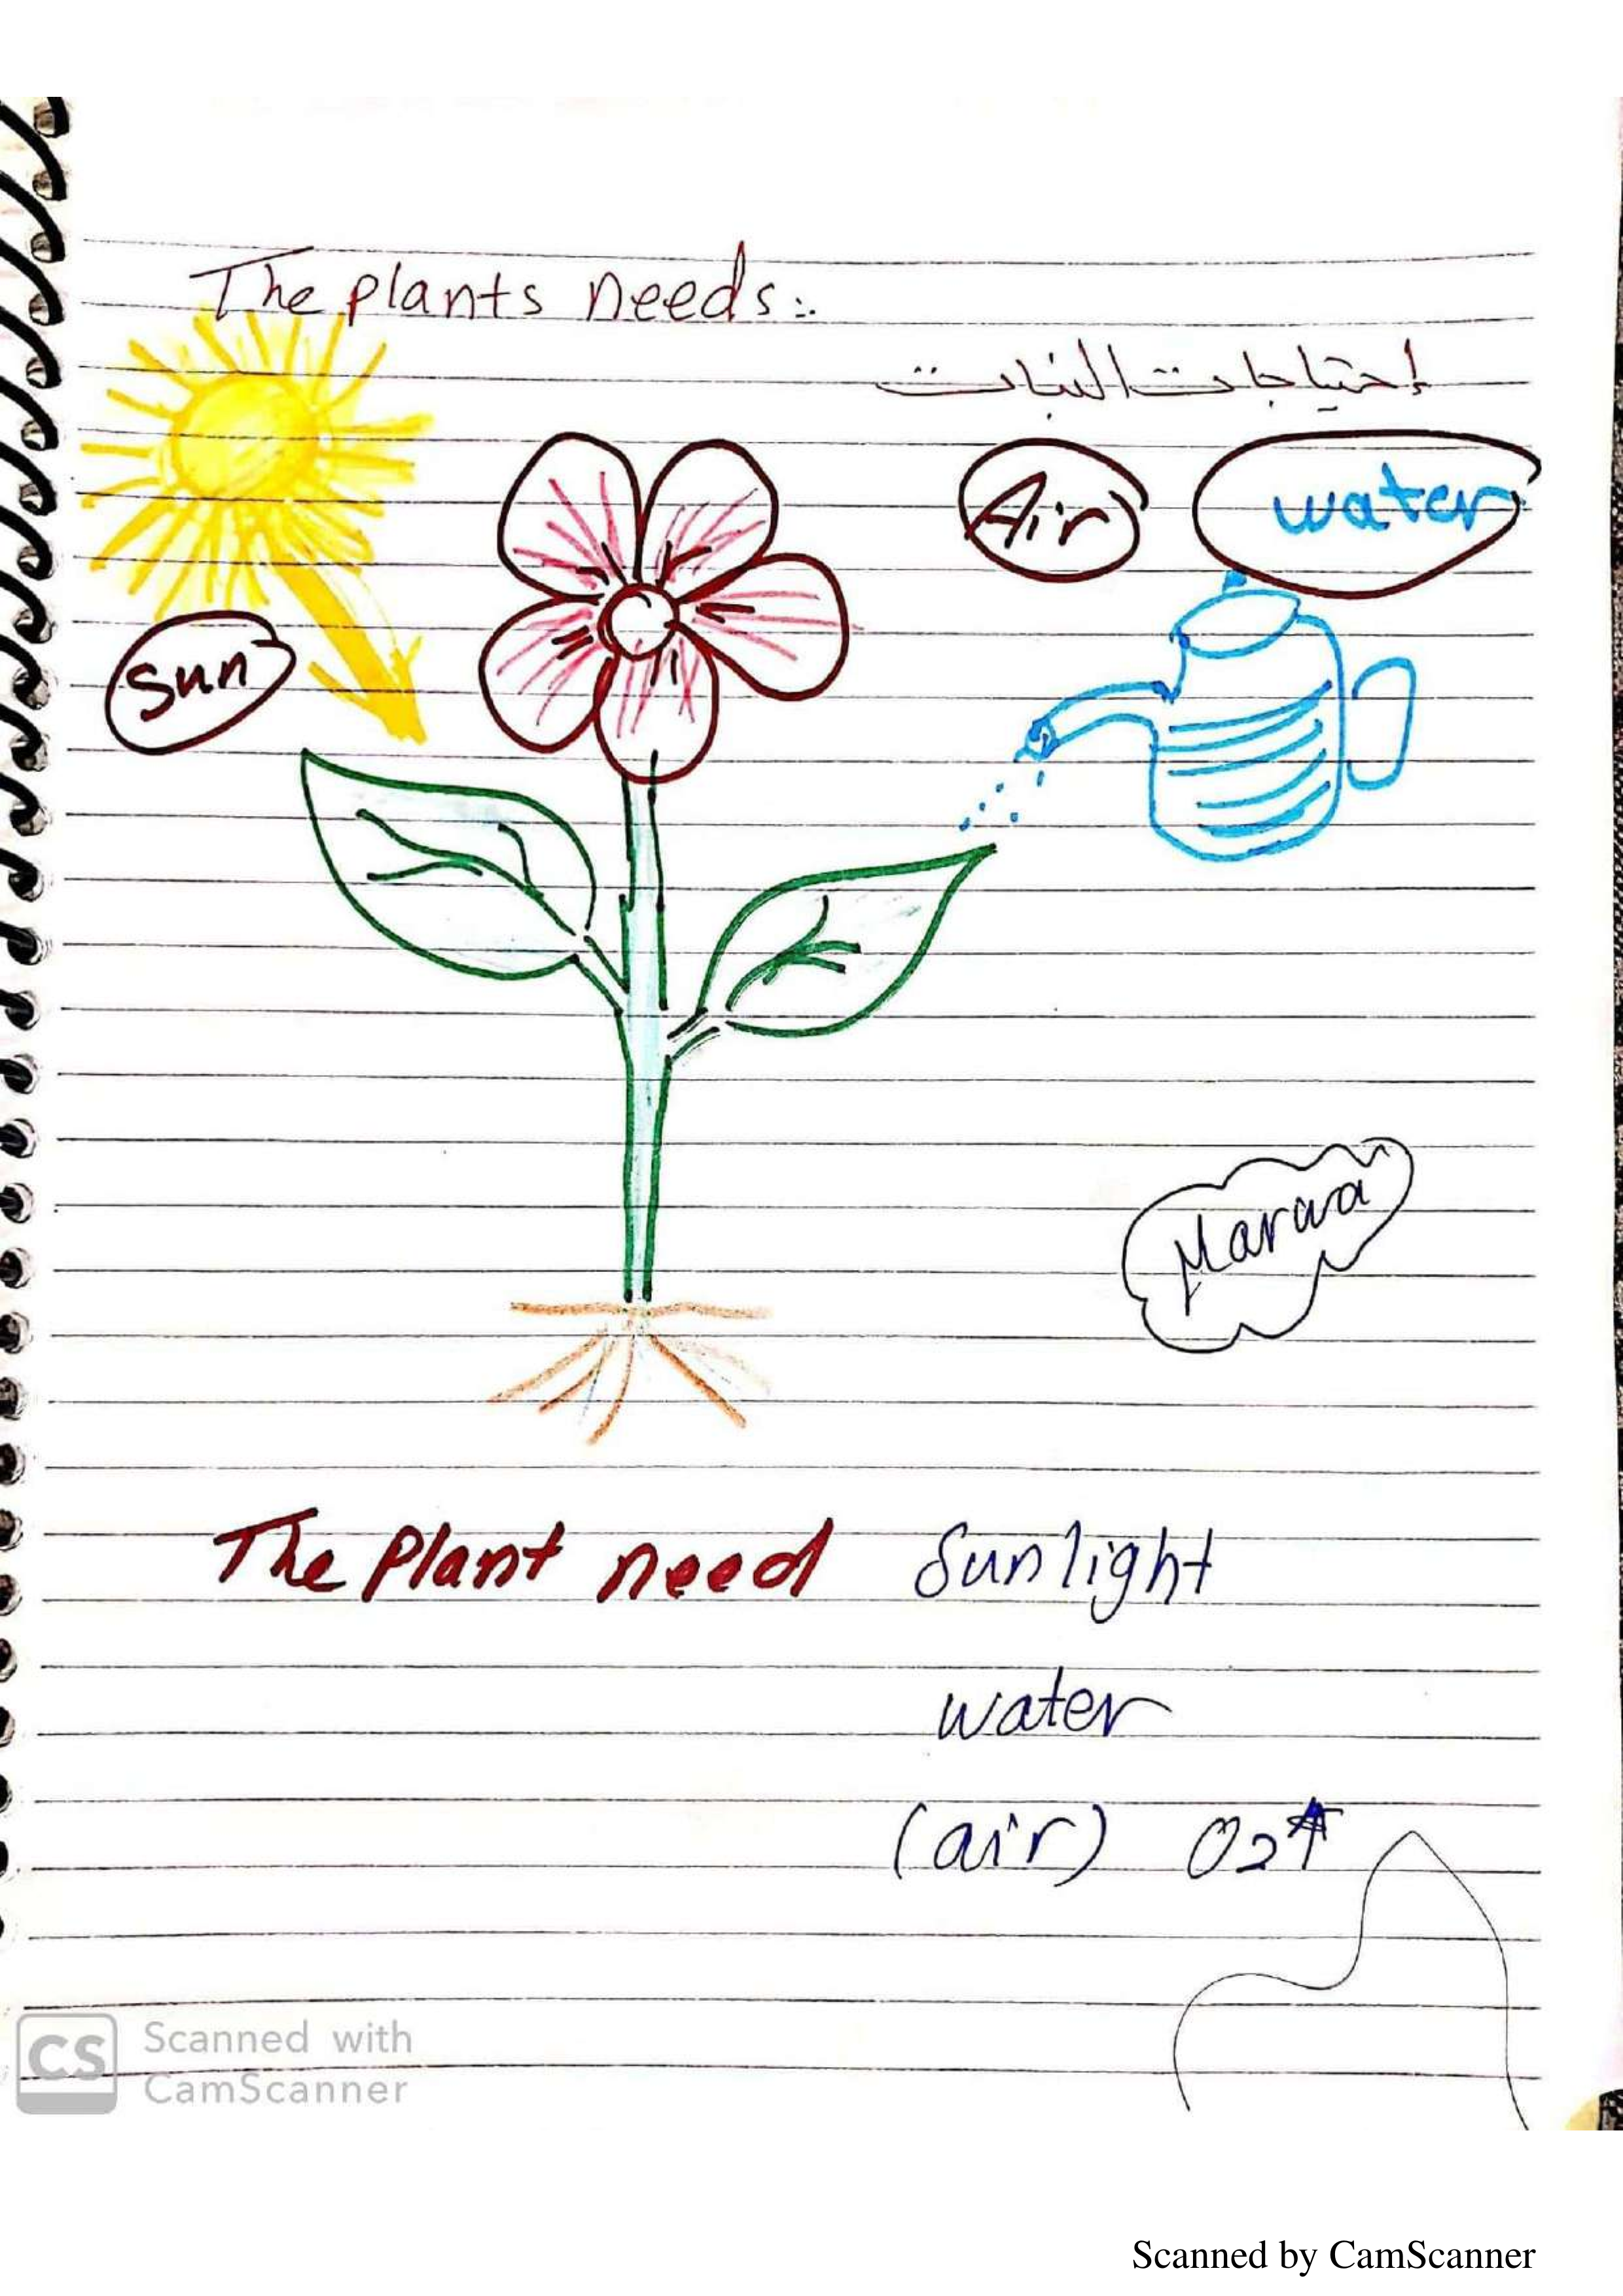 The plants needs:.
إحتياجات النبات
Air
water
sun
Marwa
The Plant need Sunlight
water
(air) O2
CS Scanned with
CamScanner
Scanned by CamScanner